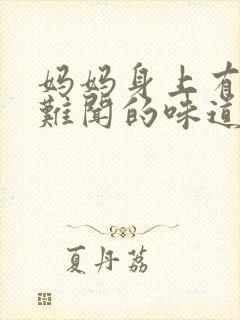 妈妈身上有
難聞的味道
夏丹荔